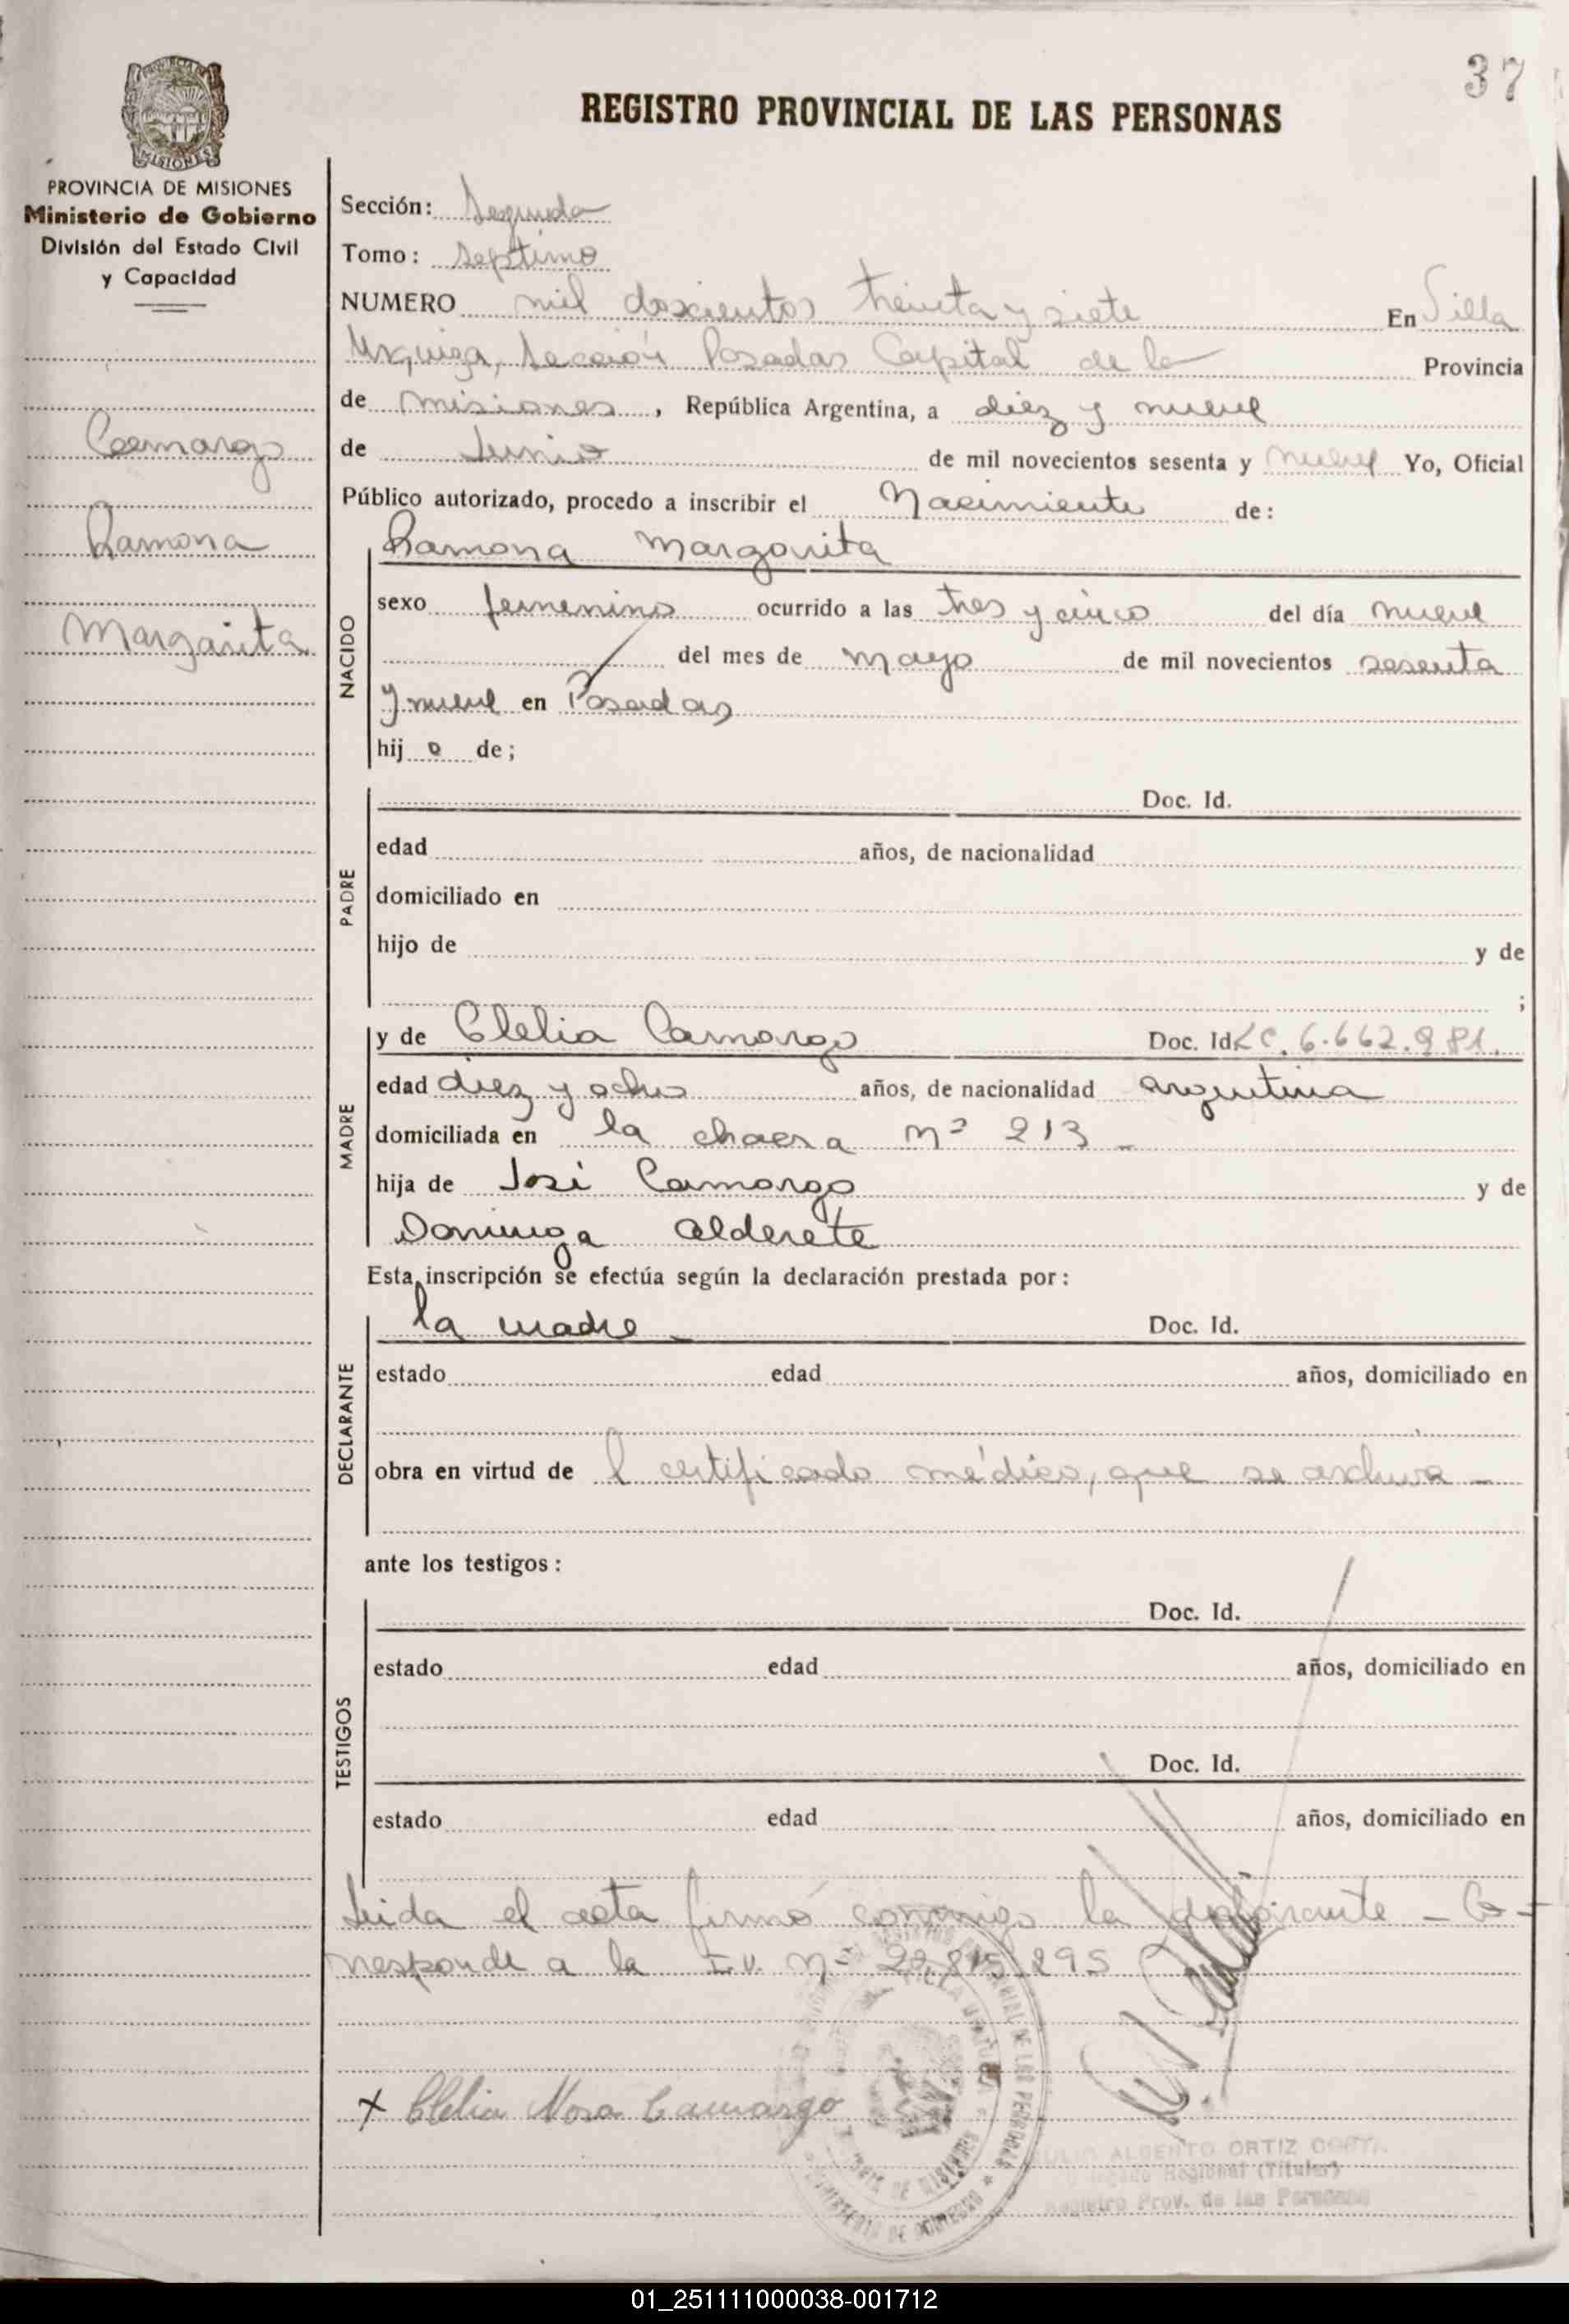 37
REGISTRO PROVINCIAL DE LAS PERSONAS
PROVINCIA DE MISIONES
Ministerio de Gobierno
División del Estado Civil
y Capacidad
Camargo
Ramona
Margarita
Sección: Segunda
Tomo: Septimo
NUMERO mil doscientos treinta y siete En Villa
Urquiza, Sección Posadas Capital de la Provincia
de Misiones, República Argentina, a diez y nueve
de Junio de mil novecientos sesenta y nueve Yo, Oficial
Público autorizado, procedo a inscribir el Nacimiento de:
NACIDO
Ramona Margarita
sexo femenino ocurrido a las tres y cinco del día nueve
del mes de mayo de mil novecientos sesenta
y nueve en Posadas
hij a de;
PADRE
Doc. Id.
edad años, de nacionalidad
domiciliado en
hijo de y de
;
MADRE
y de Clelia Camargo Doc. Id. LC. 6.662.981.
edad diez y ocho años, de nacionalidad argentina
domiciliada en la chacra Nº 213 -
hija de José Camargo y de
Dominga Alderete
Esta inscripción se efectúa según la declaración prestada por:
DECLARANTE
la madre - Doc. Id.
estado edad años, domiciliado en
obra en virtud de l certificado médico, que se archiva -
ante los testigos:
TESTIGOS
Doc. Id.
estado edad años, domiciliado en
Doc. Id.
estado edad años, domiciliado en
Leida el acta firmó conmigo la declarante - Co-
rresponde a la I.U. Nº 20.815.295
x Clelia Nora Camargo
JULIO ALBERTO ORTIZ
Regional (Titular)
Registro Prov. de las Personas
MINISTERIO DE GOBIERNO
01_251111000038-001712